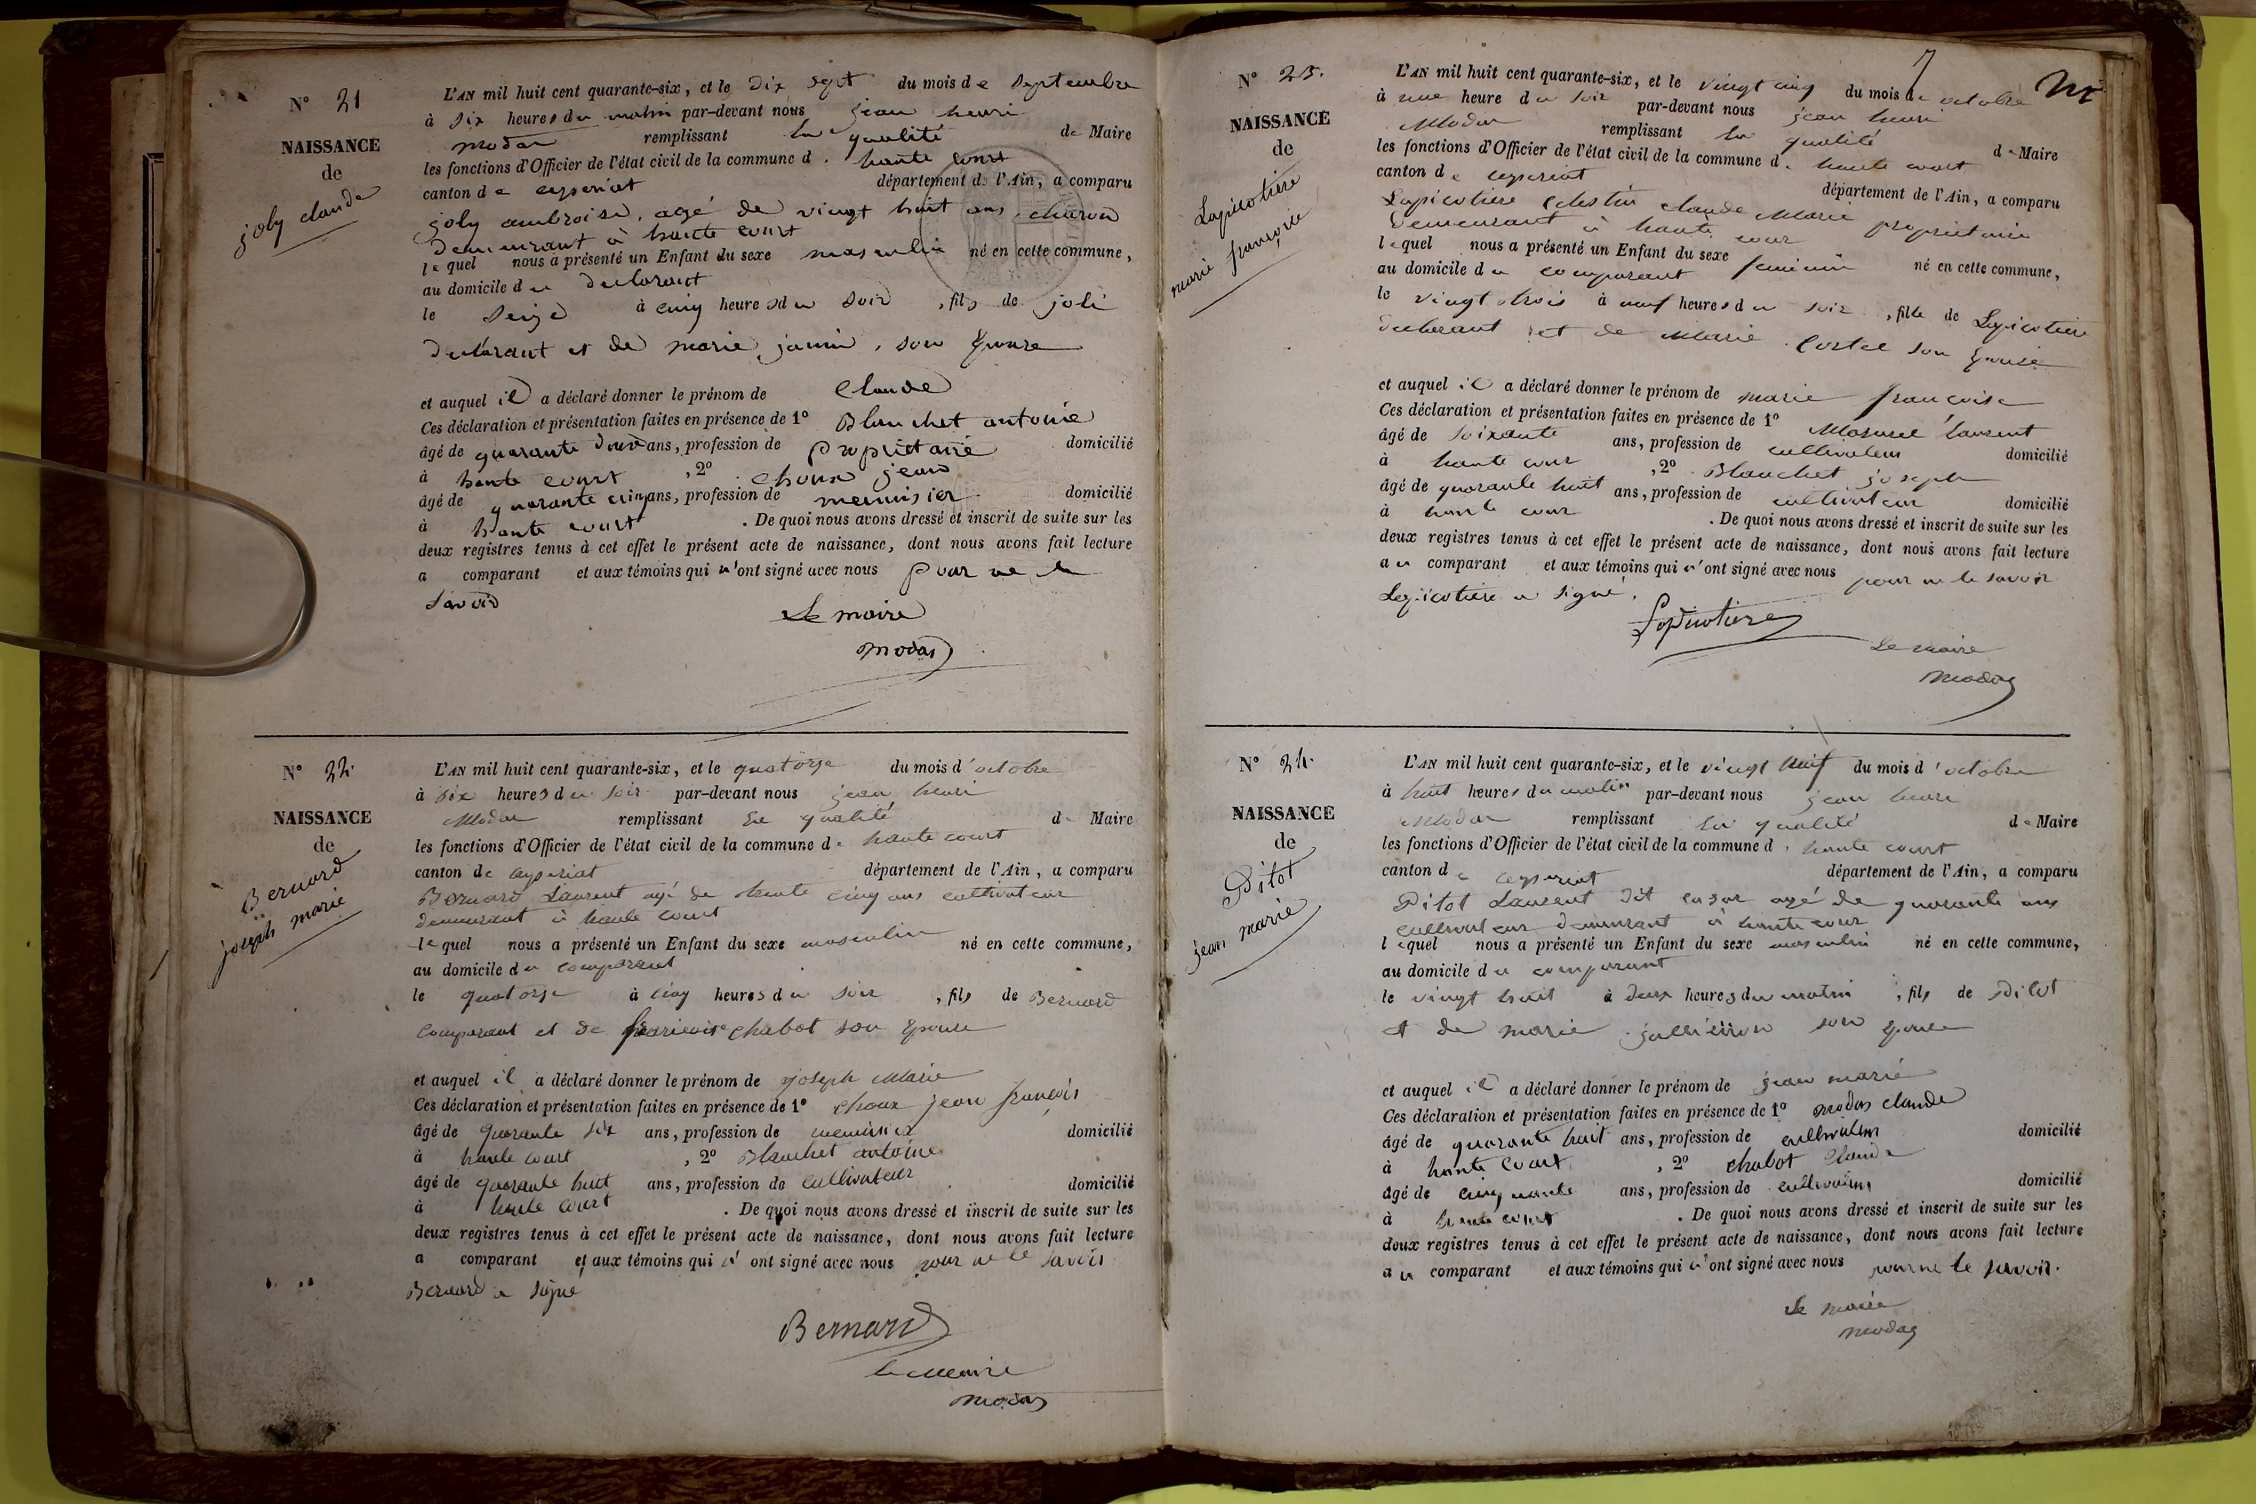 N° 21
NAISSANCE
de
joly claude
L'AN mil huit cent quarante-six, et le dix sept du mois de Septembre
à six heures du matin par-devant nous jean henri
modas remplissant la qualité de Maire
les fonctions d'Officier de l'état civil de la commune d. haute court
canton de ceyseriat département de l'Ain, a comparu
joly ambroise, agé de vingt huit ans, charon
demeurant à haute court
lequel nous a présenté un Enfant du sexe masculin né en cette commune,
au domicile du declarant
le seize à cinq heures du soir, fils de joli
declarant et de marie janin, son épouse
et auquel il a déclaré donner le prénom de claude
Ces déclaration et présentation faites en présence de 1° Blanchet antoine
âgé de quarante ans, profession de propriétaire domicilié
à haute court, 2° choux jean
âgé de quarante cinq ans, profession de menuisier domicilié
à haute court. De quoi nous avons dressé et inscrit de suite sur les
deux registres tenus à cet effet le présent acte de naissance, dont nous avons fait lecture
a comparant et aux témoins qui n'ont signé avec nous pour ne le
savoir
Le maire
modas
N° 22.
NAISSANCE
de
Bernard
joseph marie
L'AN mil huit cent quarante-six, et le quatorze du mois d'octobre
à six heures du soir par-devant nous jean henri
Modas remplissant la qualité de Maire
les fonctions d'Officier de l'état civil de la commune de haute court
canton de ceyseriat département de l'Ain, a comparu
Bernard Laurent agé de trente cinq ans cultivateur
demeurant à haute court
lequel nous a présenté un Enfant du sexe masculin né en cette commune,
au domicile du comparant
le quatorze à cinq heures du soir, fils de Bernard
comparant et de francoise chabot son épouse
et auquel il a déclaré donner le prénom de joseph Marie
Ces déclaration et présentation faites en présence de 1° choux jean françois
âgé de quarante six ans, profession de menuisier domicilié
à haute court, 2° Blanchet antoine
âgé de quarante huit ans, profession de cultivateur domicilié
à haute court. De quoi nous avons dressé et inscrit de suite sur les
deux registres tenus à cet effet le présent acte de naissance, dont nous avons fait lecture
a comparant et aux témoins qui n'ont signé avec nous pour ne le savoir
Bernard a signé
Bernard
le Maire
modas
7
N° 23.
NAISSANCE
de
Lapicotiere
marie françoise
L'AN mil huit cent quarante-six, et le vingt cinq du mois de octobre
à une heure du soir par-devant nous jean henri
Modas remplissant la qualité de Maire
les fonctions d'Officier de l'état civil de la commune de haute court
canton de ceyseriat département de l'Ain, a comparu
Lapicotiere Celestin claude Marie propriétaire
demeurant à haute cour
lequel nous a présenté un Enfant du sexe feminin né en cette commune,
au domicile du comparant
le vingt trois à neuf heures du soir, fille de Lapicotiere
declarant et de Marie Cortet son épouse
et auquel il a déclaré donner le prénom de marie françoise
Ces déclaration et présentation faites en présence de 1° Laurent
âgé de soixante ans, profession de cultivateur domicilié
à haute cour, 2° Blanchet joseph
âgé de quarante huit ans, profession de cultivateur domicilié
à haute cour. De quoi nous avons dressé et inscrit de suite sur les
deux registres tenus à cet effet le présent acte de naissance, dont nous avons fait lecture
au comparant et aux témoins qui n'ont signé avec nous pour ne le savoir
Lapicotiere a signé.
Lapicotiere
Le maire
modas
N° 24.
NAISSANCE
de
Pitot
jean marie
L'AN mil huit cent quarante-six, et le vingt neuf du mois d'octobre
à huit heures du matin par-devant nous jean henri
Modas remplissant la qualité de Maire
les fonctions d'Officier de l'état civil de la commune d. haute court
canton de ceyseriat département de l'Ain, a comparu
Pitot Laurent dit cesar agé de quarante ans
cultivateur demeurant à haute cour
lequel nous a présenté un Enfant du sexe masculin né en cette commune,
au domicile du comparant
le vingt huit à deux heures du matin, fils de Pitot
et de marie son épouse
et auquel il a déclaré donner le prénom de jean marie
Ces déclaration et présentation faites en présence de 1° modas claude
âgé de quarante huit ans, profession de cultivateur domicilié
à haute court, 2° chabot Claude
âgé de cinquante ans, profession de cultivateur domicilié
à haute court. De quoi nous avons dressé et inscrit de suite sur les
deux registres tenus à cet effet le présent acte de naissance, dont nous avons fait lecture
au comparant et aux témoins qui n'ont signé avec nous pour ne le savoir.
Le maire
modas